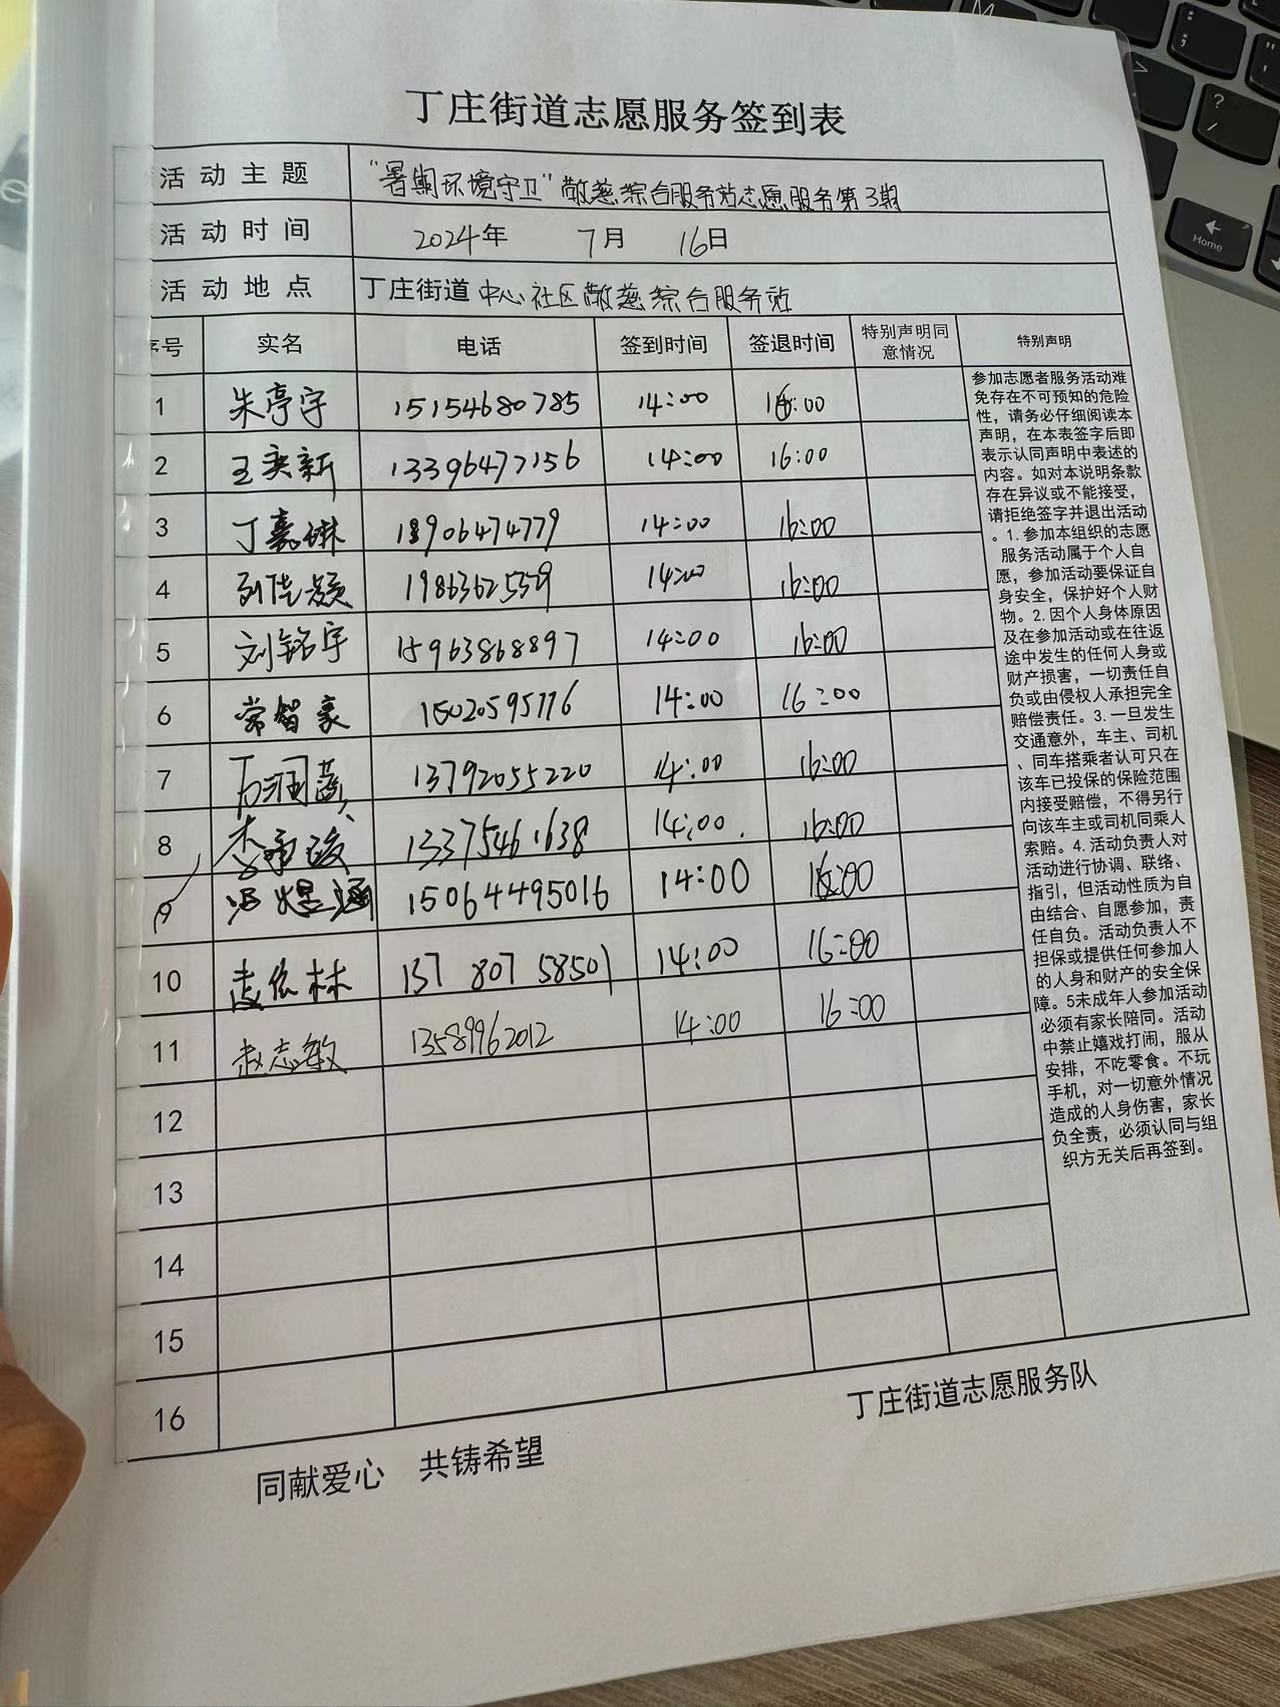 丁庄街道志愿服务签到表
活动主题 “暑期环境守卫”敬慈综合服务站志愿服务第3期
活动时间 2024年 7月 16日
活动地点 丁庄街道中心社区敬慈综合服务站
序号 实名 电话 签到时间 签退时间 特别声明同意情况 特别声明
1 朱亭宇 15154680785 14:00 16:00
2 王奕新 13396477156 14:00 16:00
3 丁嘉琳 18906474779 14:00 16:00
4 14:00 16:00
5 刘铭宇 15963868897 14:00 16:00
6 常智豪 15020595776 14:00 16:00
7 13792055220 14:00 16:00
8 13375461638 14:00 16:00
9 15064495016 14:00 16:00
10 137 807 58501 14:00 16:00
11 赵志敏 13589962012 14:00 16:00
12
13
14
15
16
参加志愿者服务活动难
免存在不可预知的危险
性，请务必仔细阅读本
声明，在本表签字后即
表示认同声明中表述的
内容。如对本说明条款
存在异议或不能接受，
请拒绝签字并退出活动
。1.参加本组织的志愿
服务活动属于个人自
愿，参加活动要保证自
身安全，保护好个人财
物。2.因个人身体原因
及在参加活动或在往返
途中发生的任何人身或
财产损害，一切责任自
负或由侵权人承担完全
赔偿责任。3.一旦发生
交通意外，车主、司机
、同车搭乘者认可只在
该车已投保的保险范围
内接受赔偿，不得另行
向该车主或司机同乘人
索赔。4.活动负责人对
活动进行协调、联络、
指引，但活动性质为自
由结合、自愿参加，责
任自负。活动负责人不
担保或提供任何参加人
的人身和财产的安全保
障。5未成年人参加活动
必须有家长陪同。活动
中禁止嬉戏打闹，服从
安排，不吃零食。不玩
手机，对一切意外情况
造成的人身伤害，家长
负全责，必须认同与组
织方无关后再签到。
丁庄街道志愿服务队
同献爱心 共铸希望
Home